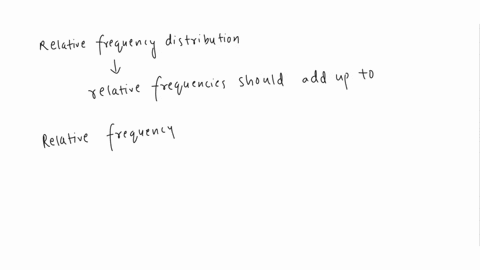 Relative frequency distribution
relative frequencies should add up to
Relative frequency